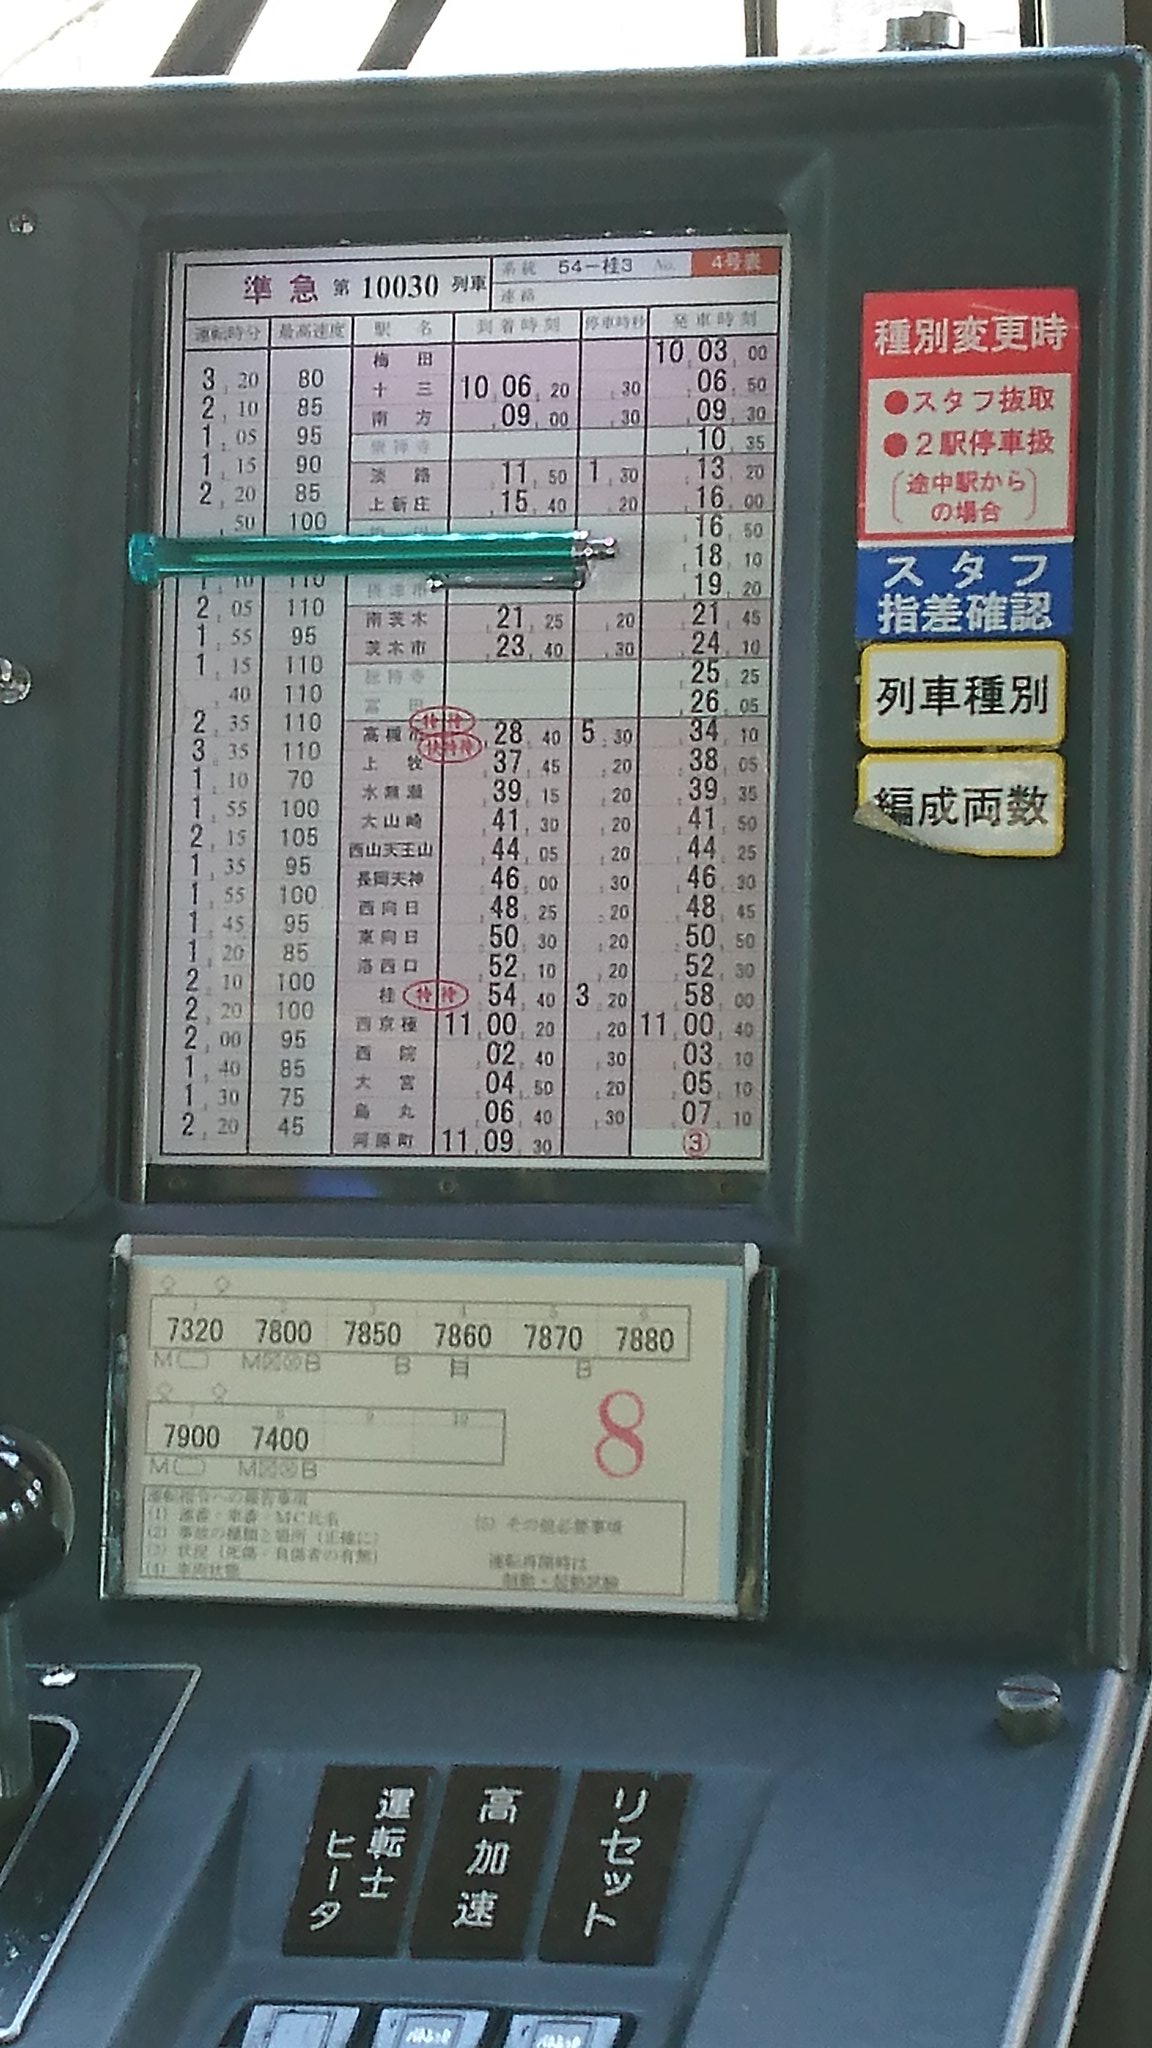 準急 第 10030 列車 系統 54-桂3 No. 4号表
連絡
運転時分 最高速度 駅名 到着時刻 停車時秒 発車時刻
梅田 10.03.00
3.20 80 十三 10.06.20 .30 .06.50
2.10 85 南方 .09.00 .30 .09.30
1.05 95 崇禅寺 .10.35
1.15 90 淡路 .11.50 1.30 .13.20
2.20 85 上新庄 .15.40 .20 .16.00
.50 100 .16.50
.18.10
1.10 110 摂津市 .19.20
2.05 110 南茨木 .21.25 .20 .21.45
1.55 95 茨木市 .23.40 .30 .24.10
1.15 110 総持寺 .25.25
.40 110 富田 .26.05
2.35 110 高槻市 特待 .28.40 5.30 .34.10
3.35 110 上牧 .37.45 .20 .38.05
1.10 70 水無瀬 .39.15 .20 .39.35
1.55 100 大山崎 .41.30 .20 .41.50
2.15 105 西山天王山 .44.05 .20 .44.25
1.35 95 長岡天神 .46.00 .30 .46.30
1.55 100 西向日 .48.25 .20 .48.45
1.45 95 東向日 .50.30 .20 .50.50
1.20 85 洛西口 .52.10 .20 .52.30
2.10 100 桂 特待 .54.40 3.20 .58.00
2.20 100 西京極 11.00.20 .20 11.00.40
2.00 95 西院 .02.40 .30 .03.10
1.40 85 大宮 .04.50 .20 .05.10
1.30 75 烏丸 .06.40 .30 .07.10
2.20 45 河原町 11.09.30 ③
種別変更時
●スタフ抜取
●2駅停車扱
(途中駅から
の場合)
スタフ
指差確認
列車種別
編成両数
1 2 3 4 5 6
7320 7800 7850 7860 7870 7880
7 8 9 10
7900 7400
8
運転指令への報告事項
(1) 列番・車番・MC氏名
(2) 事故の種類と場所(正確に)
(3) 状況(死傷・負傷者の有無)
(4) 車両状態
(5) その他必要事項
運転再開時は
制動・起動試験
運転士
ヒータ
高加速
リセット